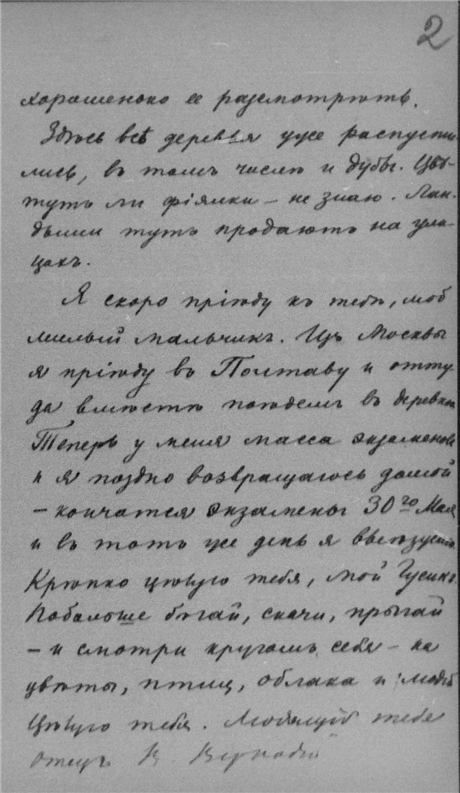 2
хорошенько ее разсмотрѣть.
Здѣсь всѣ деревья уже распусти-
лись, въ томъ числѣ и дубы. Цвѣ-
тутъ ли фіялки – не знаю. Лан-
дыши тутъ продаютъ на ули-
цахъ.
Я скоро пріѣду къ тебѣ, мой
милый мальчикъ. Изъ Москвы
я пріѣду въ Полтаву и отту-
да вмѣстѣ поѣдемъ въ деревню
Теперь у меня масса экзаменовъ
и я поздно возвращаюсь домой
– кончатся экзамены 30го Мая
и въ тотъ же день я выѣзжаю
Крѣпко цѣлую тебя, мой Гусикъ
Побольше бѣгай, скачи, прыгай
– и смотри кругомъ себя – на
цвѣты, птиц, облака и людей
Цѣлую тебя. Любящій тебя
отецъ В. Вернадскій